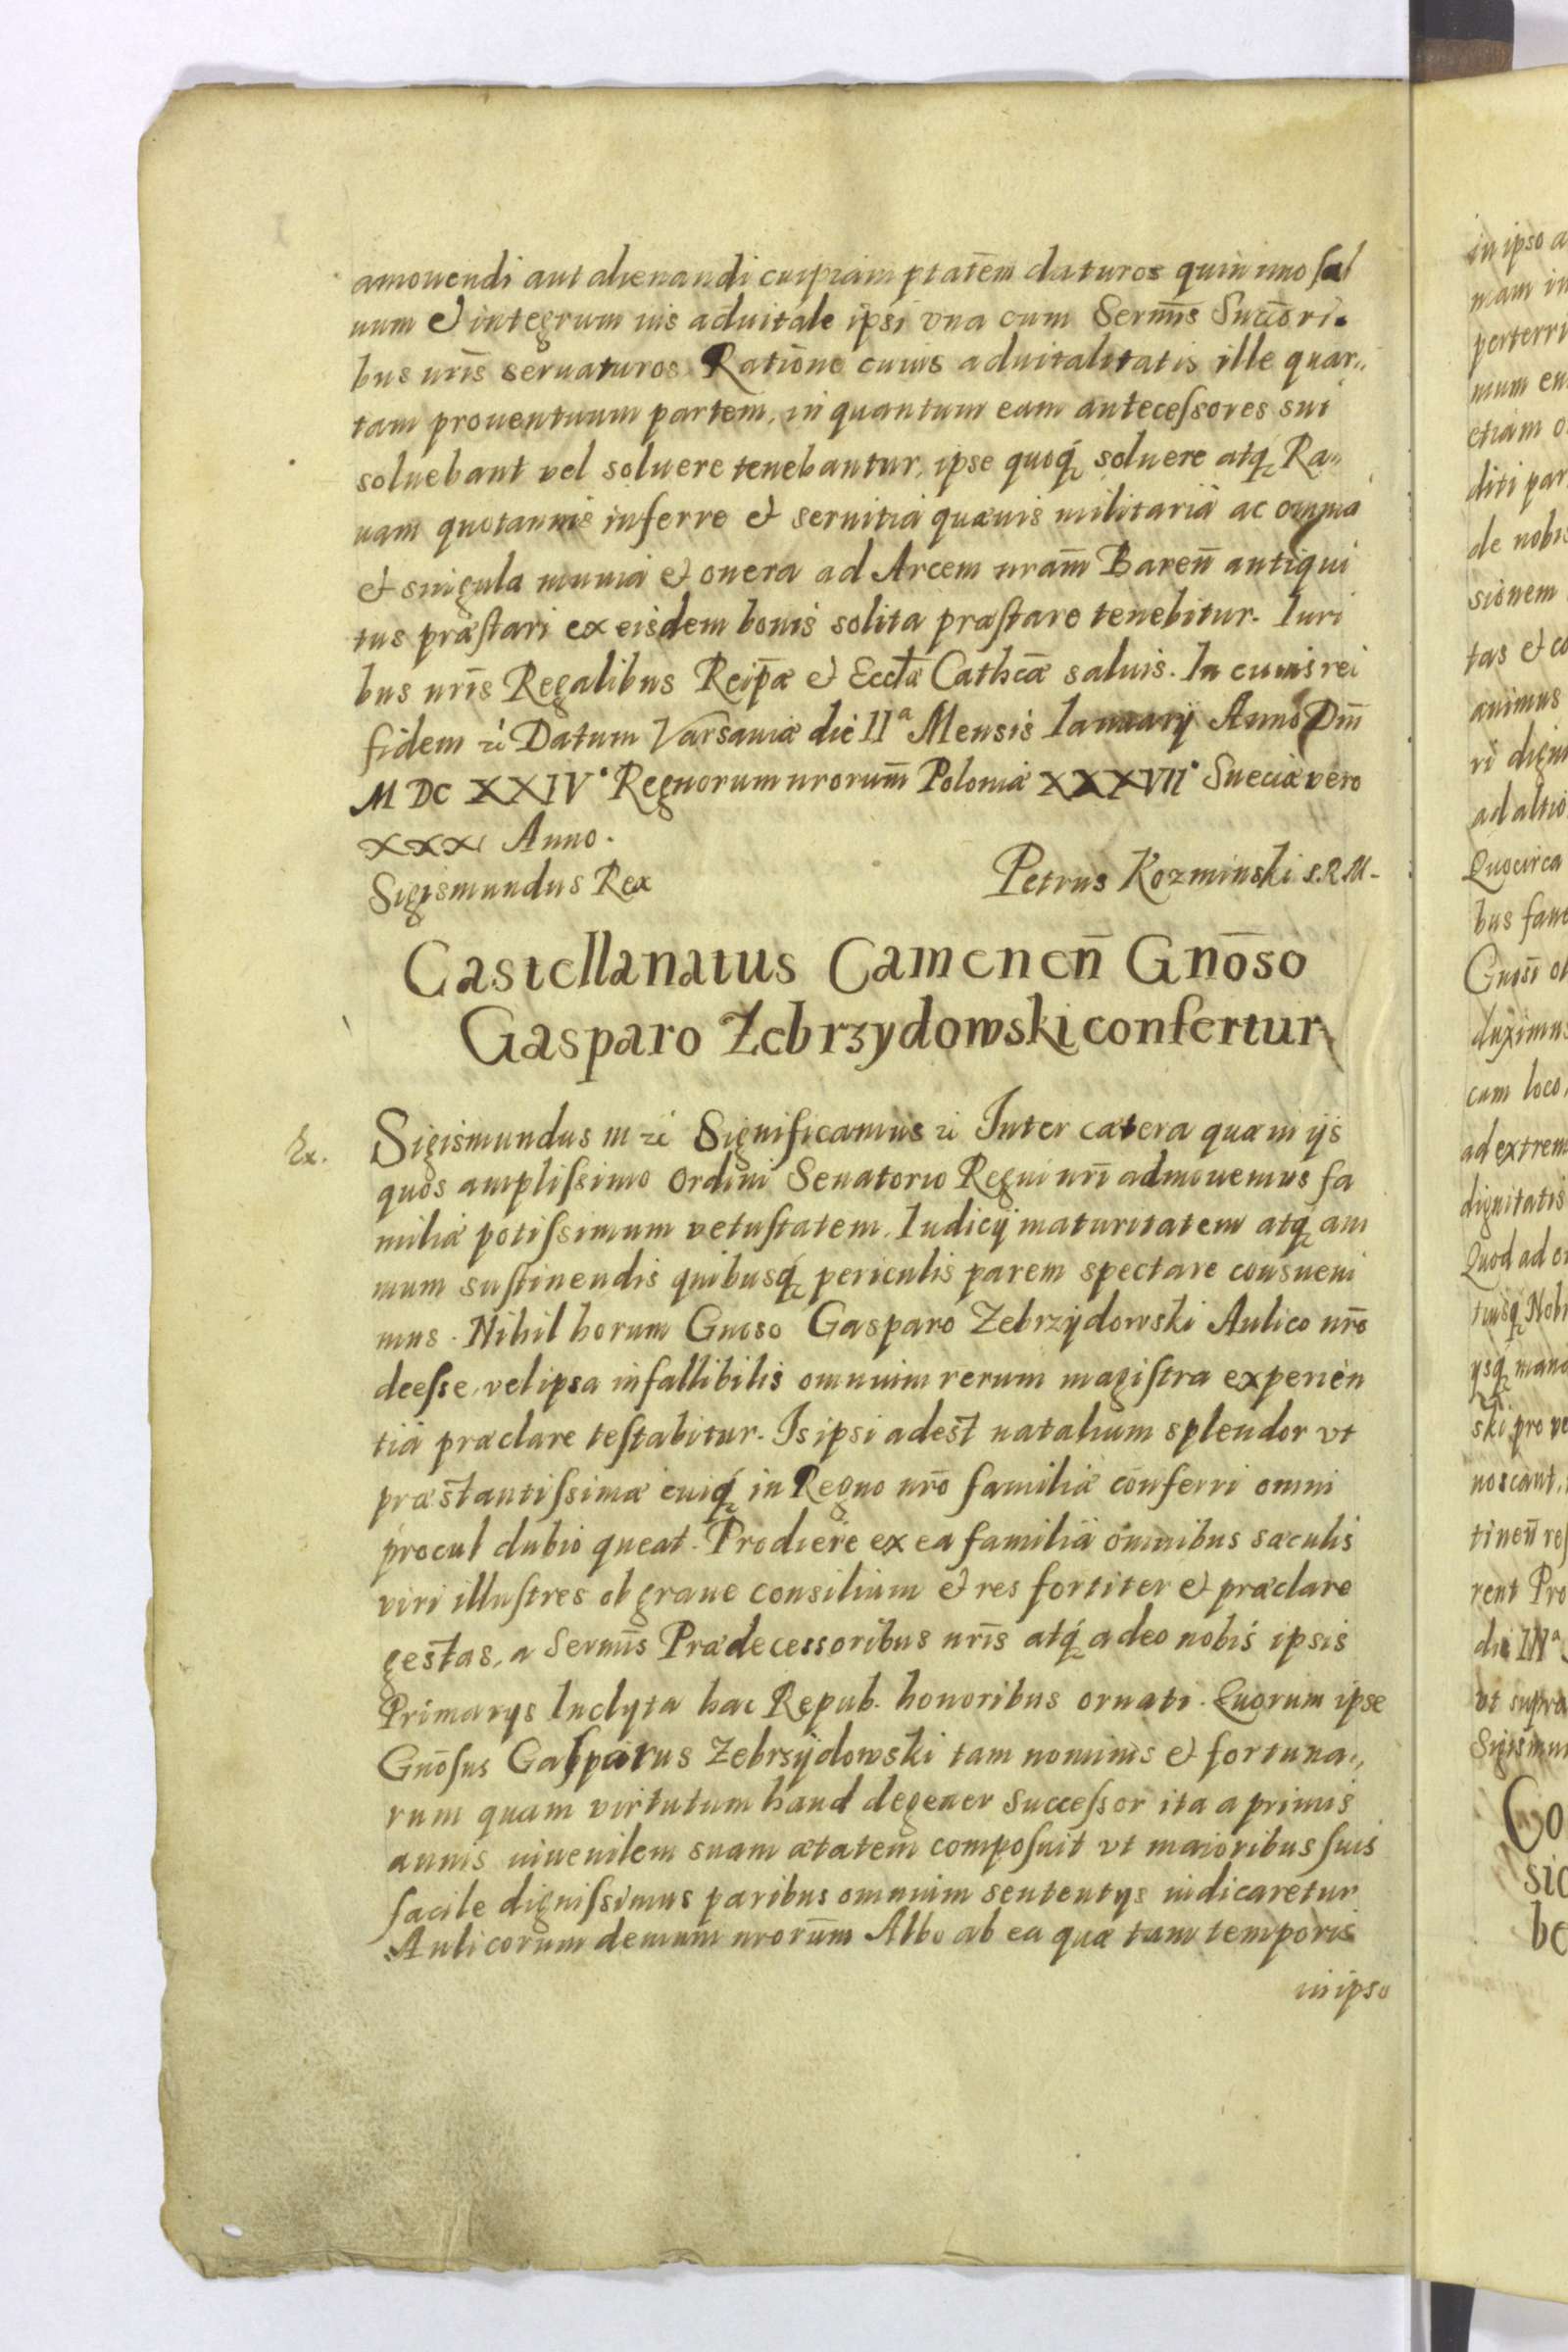 amouendi aut alienandi cuipiam ptatem̄ daturos quin imo sal
uum et integrum ius aduitale ipsi vna cum Serm̄is Succōri
bus nr̄is seruaturos. Ratione cuius aduitalitatis ille quar„
tam prouentuum partem, in quantum eam antecessores sui
soluebant vel soluere tenebantur, ipse quoq́ soluere atq́ Ra„
uam quotannis inferre et seruitia quæuis militaria ac omnia
et singula munia et onera ad Arcem nram̄ Baren̄ antiqui
tus præstari ex eisdem bonis solita præstare tenebitur. Iuri
bus nr̄is Regalibus Reip̄æ et Eccl̄æ Cathc̄æ saluis. In cuius rei
fidem zc̄ Datum Varsauiæ die IIa Mensis Ianuarij Anno Dn̄i
M DC XXIV° Regnorum nrorum̄ Poloniæ XXXVII° Sueciæ vero
XXXI Anno.
Sigismundus Rex
Petrus Kozminski S.R.M.
Castellanatus Camenen̄ Gnōso
Gasparo Zebrzydowski confertur
Ex.
Sigismundus III zc̄ Significamus zc̄ Inter cætera quæ in ijs
quos amplissimo Ordini Senatorio Regni nrī admouemus fa
miliæ potissimum vetustatem, Iudicij maturitatem atq́ ani
mum sustinendis quibusq́ periculis parem spectare consueui
mus. Nihil horum Gnoso Gasparo Zebrzydowski Aulico nrō
deesse, vel ipsa infallibilis omnium rerum magistra experien
tia præclare testabitur. Is ipsi adest natalium splendor vt
præstantissimæ cuiq́ in Regno nrō familiæ conferri omni
procul dubio queat. Prodiere ex ea familia omnibus sæculis
viri illustres ob graue consilium et res fortiter et præclare
gestas, a Serm̄is Prædecessoribus nr̄is atq́ adeo nobis ipsis
Primarys Inclyta hac Repub. honoribus ornati. Quorum ipse
Gnōsus Gasparus Zebrzydowski tam nominis et fortuna„
rum quam virtutum haud degener Successor ita a primis
annis iuuenilem suam ætatem composuit vt maioribus suis
facile dignissimus paribus omnium sententys iudicaretur
Aulicorum demum nrorūm Albo ab ea quæ tum temporis
in ipso